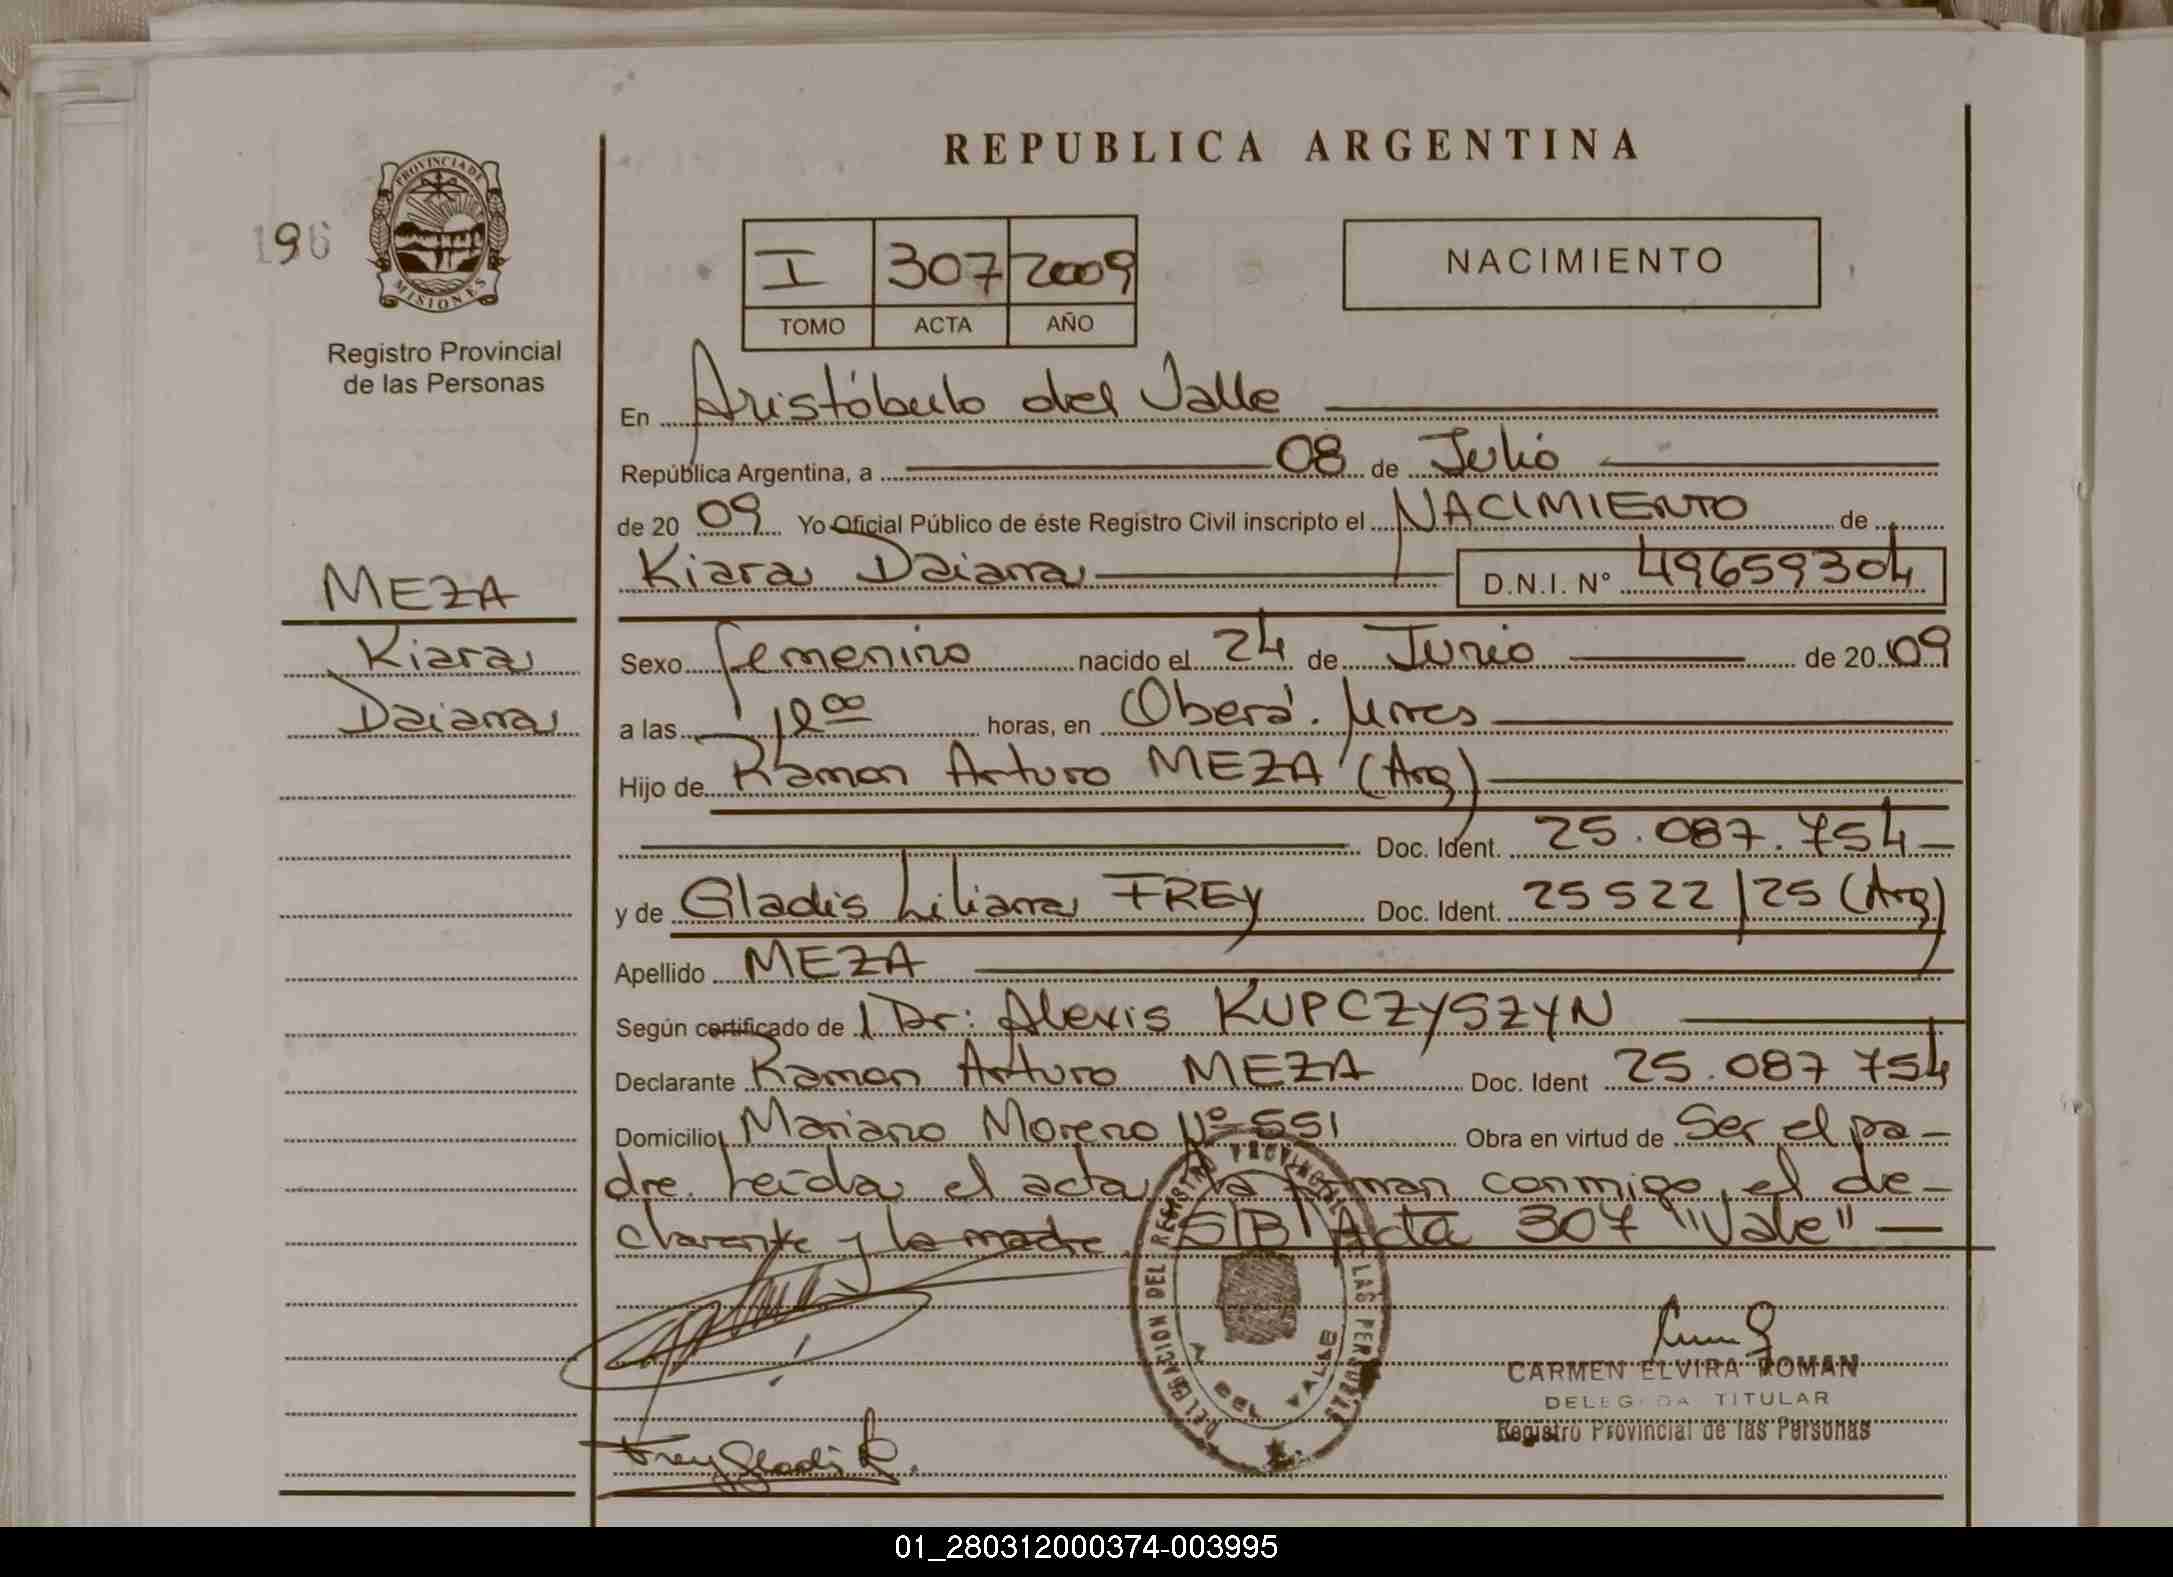 REPUBLICA ARGENTINA
PROVINCIA DE
MISIONES
196
Registro Provincial
de las Personas
I 307 2009
TOMO ACTA AÑO
NACIMIENTO
En Aristóbulo del Valle
República Argentina, a 08 de Julio
de 20 09 Yo Oficial Público de éste Registro Civil inscripto el NACIMIENTO de
Kiara Daiana D.N.I. Nº 49659304
MEZA
Kiara
Daiana
Sexo femenino nacido el 24 de Junio de 20 09
a las horas, en Oberá. Mnes
Hijo de Ramon Arturo MEZA (Arg)
Doc. Ident. 25.087.754
y de Gladis Liliana FREY Doc. Ident. 25 522 125 (Arg)
Apellido MEZA
Según certificado de Dr: Alexis KUPCZYSZYN
Declarante Ramon Arturo MEZA Doc. Ident 25.087 754
Domicilio Mariano Moreno Nº 551 Obra en virtud de Ser el pa-
dre. Leida el acta la firman conmigo, el de-
clarante y la madre S/B Acta 307 "Vale"
DELEGACION DEL REGISTRO PROVINCIAL DE LAS PERSONAS
A. DEL VALLE
Frey Gladis L.
CARMEN ELVIRA ROMAN
DELEGADA TITULAR
Registro Provincial de las Personas
01_280312000374-003995